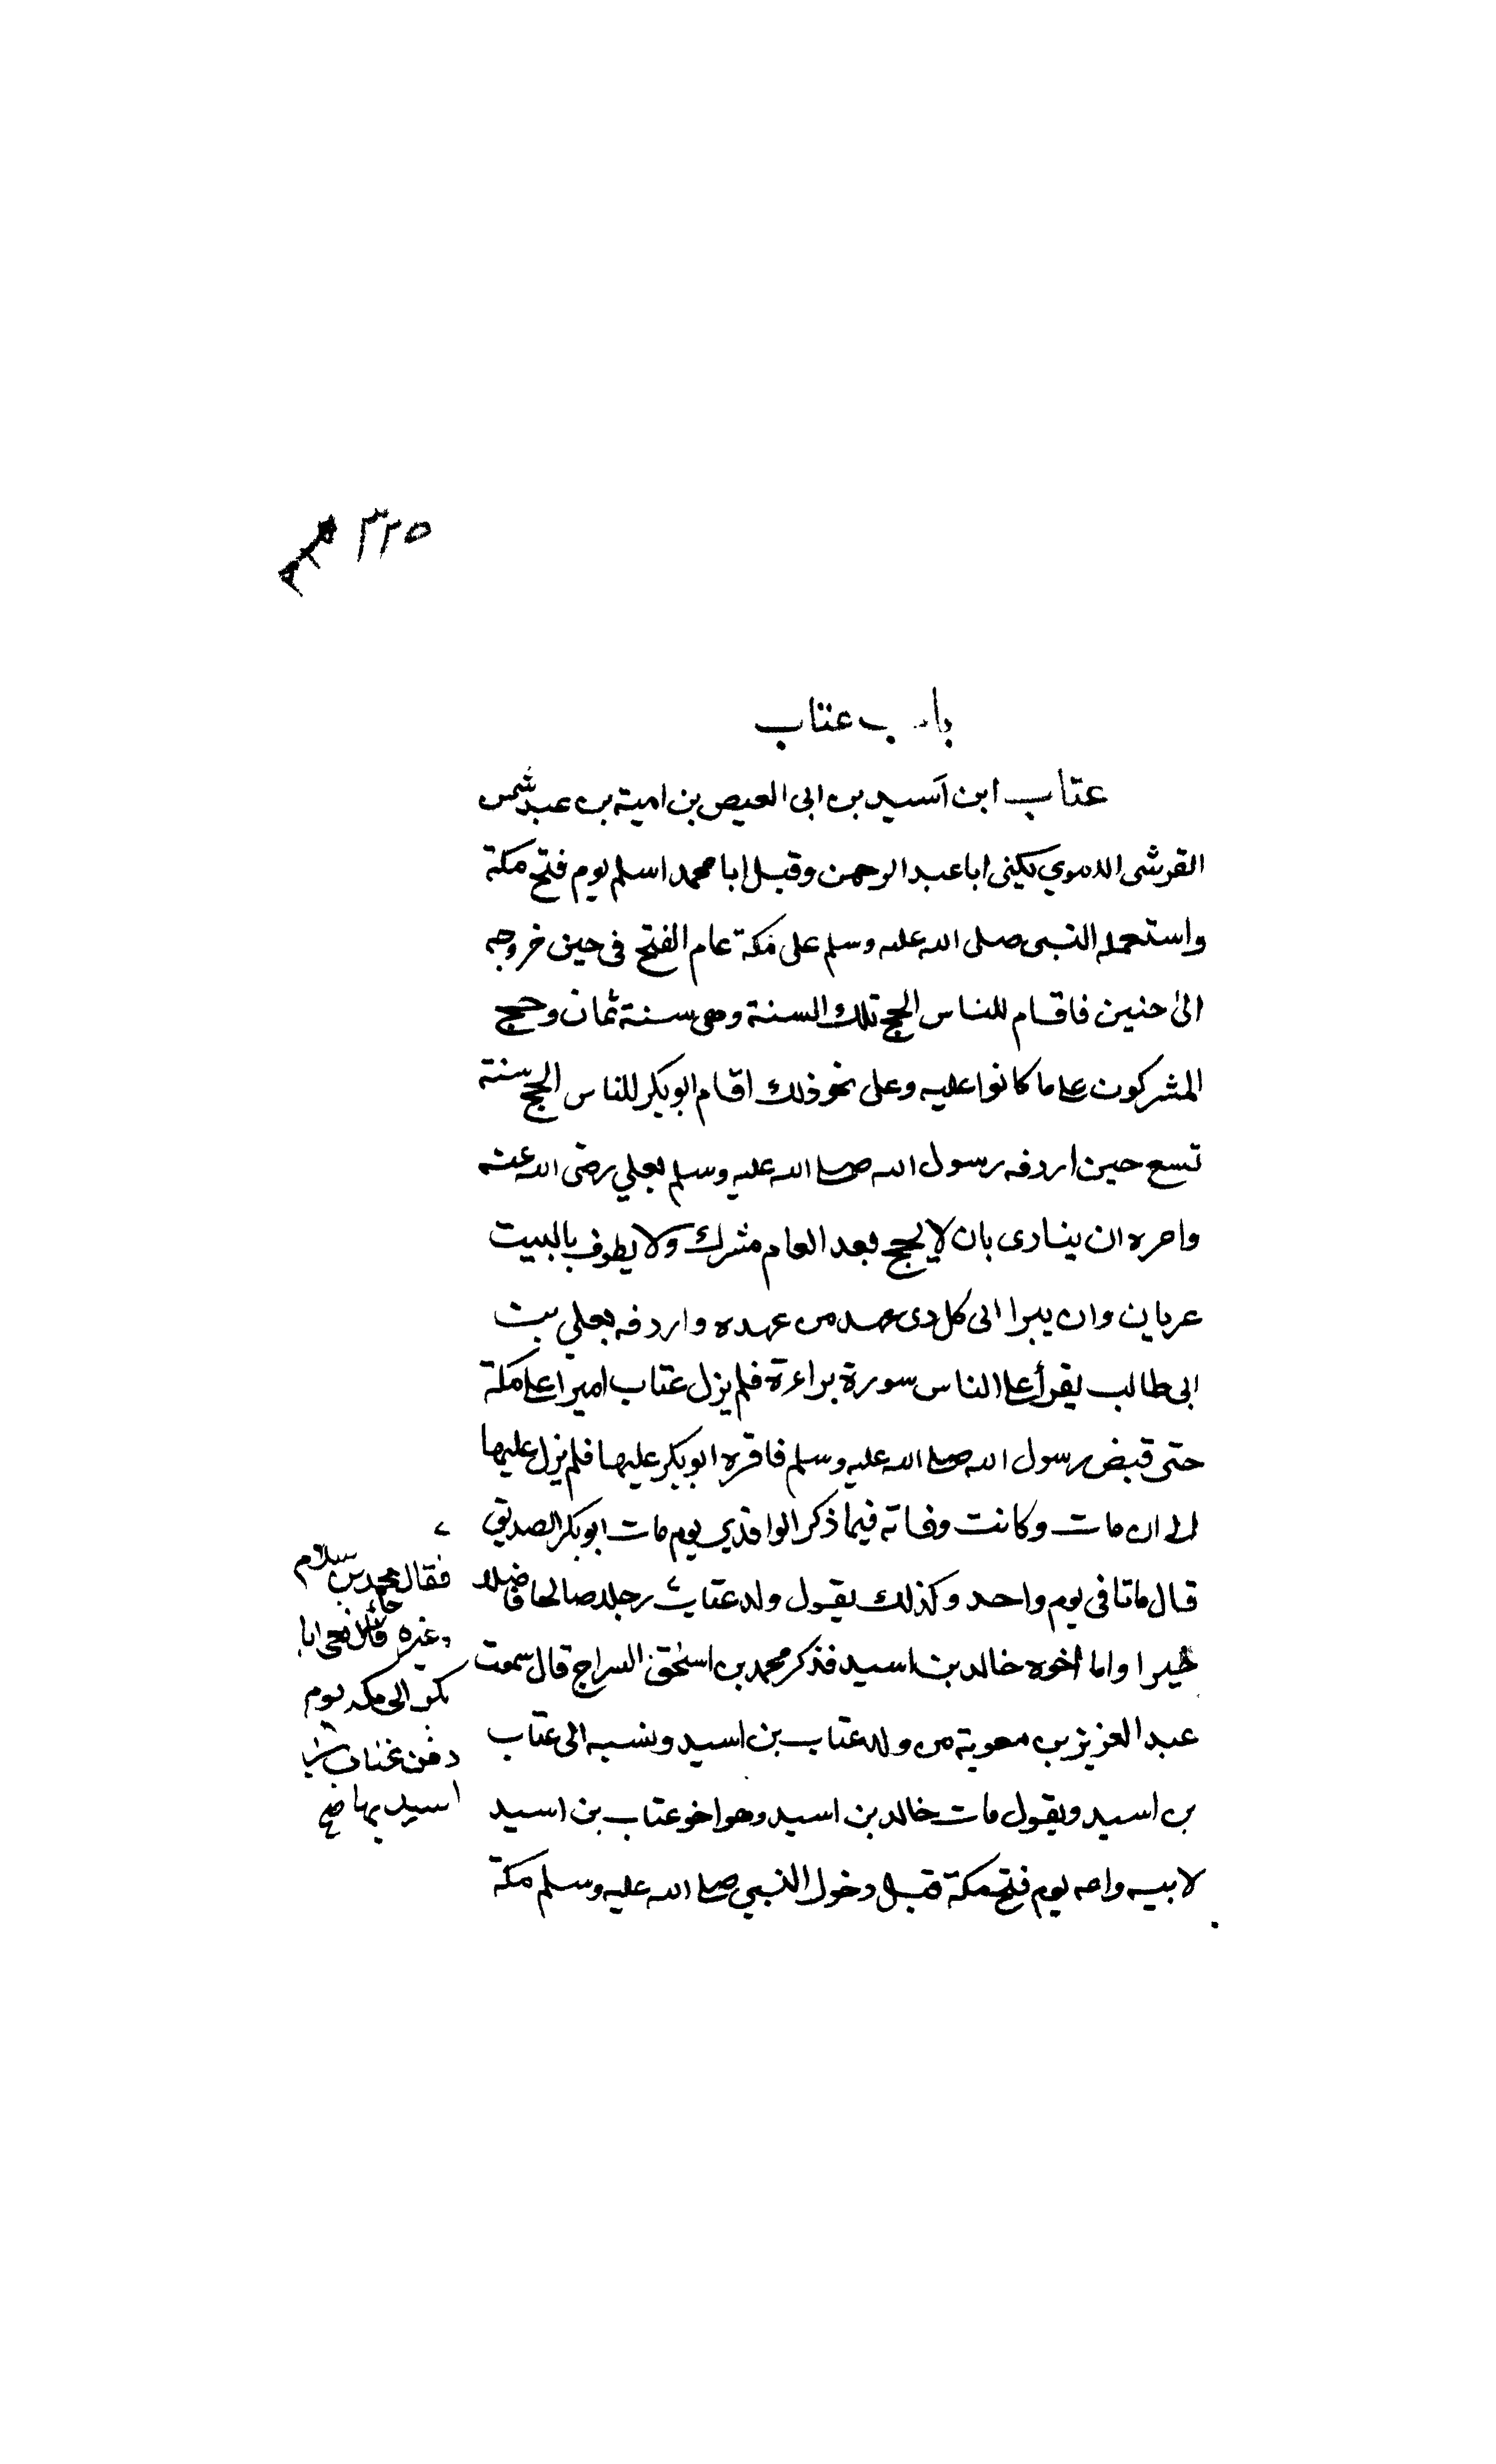 ٣٢٥
باب عتاب
عتاب ابن اَسيد بن ابى العيص بن امية بن عبد شمس
القرشى الاموي يكنى ابا عبد الرحمن وقيل ابا محمد اسلم يوم فتح مكة
واستعمله النبى صلى الله عليه وسلم على مكة عام الفتح فى حين خروجه
الى حنين فاقام للناس الحج تلك السنة وهى سنة ثمان وحج
المشركون على ما كانوا عليه وعلى نحو ذلك اقام ابو بكر للناس الحج سنة
تسع حين اردفه رسول الله صلى الله عليه وسلم بعلي رضى الله عنه
وامره ان ينادى بان لا يحج بعد العام مشرك ولا يطوف بالبيت
عريان وان يبرا الى كل ذى عهد من عهده واردفه بعلي بن
ابى طالب يقرأ على الناس سورة براءة فلم يزل عتاب اميرا على مكة
حتى قبض رسول الله صلى الله عليه وسلم فاقره ابو بكر عليها فلم يزل عليها
الى ان مات وكانت وفاته فيما ذكر الواقدي يوم مات ابو بكر الصديق
قال ماتا فى يوم واحد وكذلك يقول ولد عتاب رجلا صالحا فاضلا
خيرا واما أخوه خالد بن اسيد فذكر محمد بن اسحق السراج قال سمعت
عبد العزيز بن معوية من ولد عتاب بن اسيد ونسبه الى عتاب
بن اسيد ويقول مات خالد بن اسيد وهو اخو عتاب بن اسيد
لابيه وامه يوم فتح مكة قبل دخول النبي صلى الله عليه وسلم مكة
فقال محمد بن سلام
وغيره جاء نعى ابا
بكر الى مكه يوم
دفن عتاب بن
اسيد بها صح